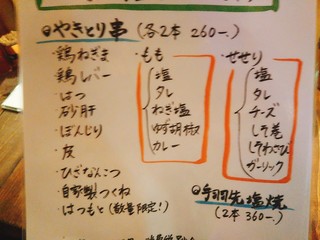 やきとり串（各2本 260-.）
・鶏ねぎま
・鶏レバー
・はつ
・砂肝
・ぼんじり
・皮
・ひざなんこつ
・自家製つくね
・はつもと（数量限定！）
・もも
塩
タレ
ねぎ塩
ゆず胡椒
カレー
・せせり
塩
タレ
チーズ
しそ巻
しそわさび
ガーリック
手羽先塩焼
（2本 360-.）